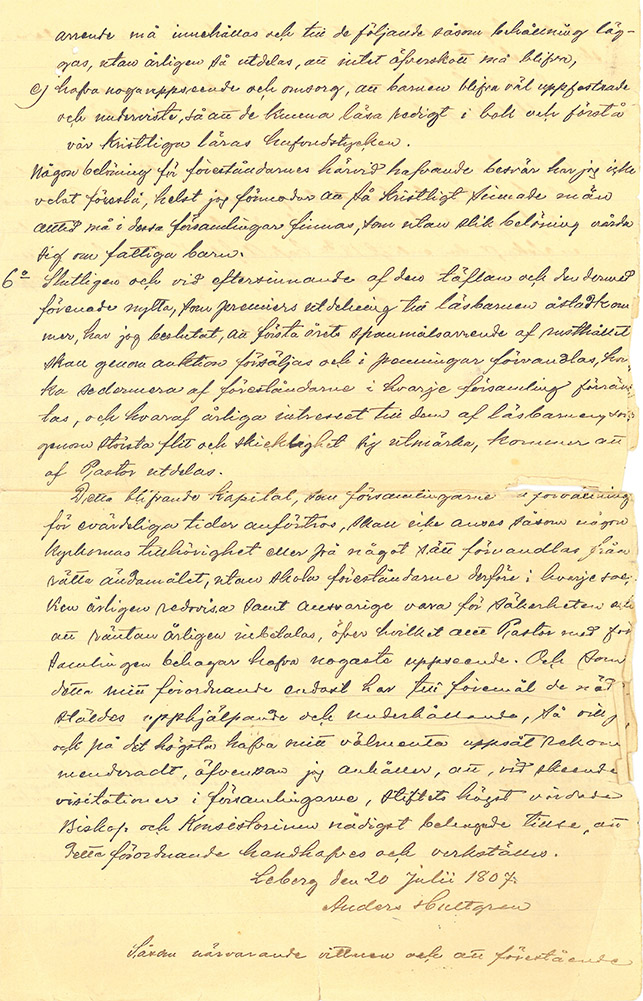 arrende må innehållas och till de följande såsom behållning läg-
gas, utan årligen så utdelas, att intet öfverskott må blifva,
c) hafva noga uppseende och omsorg, att barnen blifva väl uppfostrade
och underviste, så att de kunna läsa redigt i bok och förstå
vår Kristliga läras hufvudstycken.
Någon belöning för föreståndarnes härvid hafvande besvär har jag icke
velat föreslå, helst jag förmodar att så Kristligt sinnade män
alltid må i dessa församlingar finnas, som utan slik belöning vårda
sig om fattiga barn.
6º Slutligen och vid eftersinnande af den täflan och den dermed
förenade nytta, som premiers utdelning till läsbarnen åstadkom
mer, har jag beslutat, att första årets spanmålsarrende af rusthållet
skall genom auktion försäljas och i penningar förvandlas, hvil
ka sedermera af föreståndarne i hvarje församling förrän
tas, och hvaraf årliga intresset till dem af läsbarnen, som
genom största flit och skicklighet sig utmärka, kommer att
af Pastor utdelas.
Detta blifvande kapital, som församlingarne i förvaltning
för evärdeliga tider anförtros, skall icke anses såsom någon
Kyrkornas tillhörighet eller på något sätt förvandlas från
rätta ändamålet, utan skola föreståndarne derföre i hvarje soc
ken årligen redovisa samt ansvarige vara för säkerheten och
att räntan årligen inbetalas, öfver hvilket allt Pastor med för
samlingen behagar hafva nogaste uppseende. Och som
detta mitt förordnande endast har till föremål de nöd
stäldes upphjälpande och underhållande, så vill jag
ock på det högsta hafva mitt välmenta uppsåt rekom
menderadt, äfvensom jag anhåller, att, vid skeende
visitationer i församlingarne, stiftets högst vördade
Biskop och Konsistorium nådigst behagade tillse, att
detta förordnande handhafves och verkställes.
Leberg den 20 Julii 1807.
Anders Hultgren
Såsom närvarande vittnen och att förestående